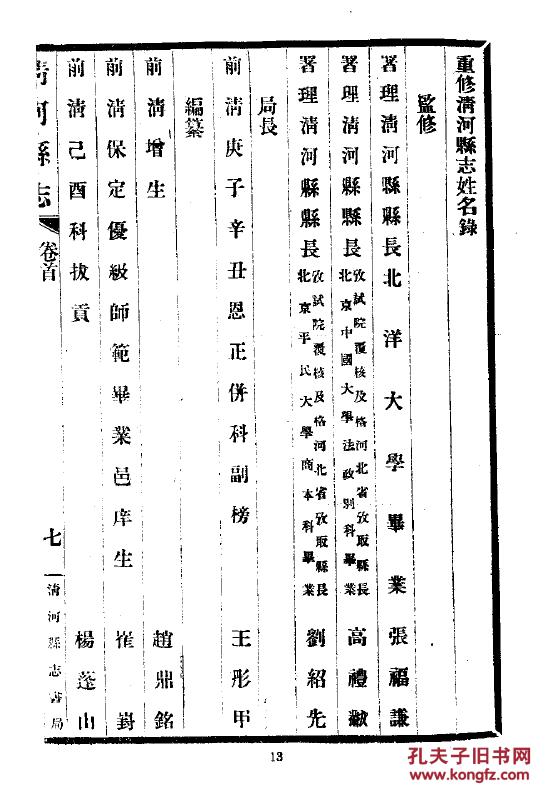 重修清河縣志姓名錄
監修
署理清河縣縣長北洋大學畢業 張福謙
署理清河縣縣長攷試院覆核及格河北省攷取縣長北京中國大學法政別科畢業 高禮
署理清河縣縣長攷試院覆核及格河北省攷取縣長北京平民大學商本科畢業 劉紹先
局長
前清庚子辛丑恩正併科副榜 王彤甲
編纂
前清增生 趙鼎銘
前清保定優級師範畢業邑庠生 崔
前清己酉科拔貢 楊蓬山
清河縣志
卷首
七
清河縣志書局
13
孔夫子旧书网
www.kongfz.com